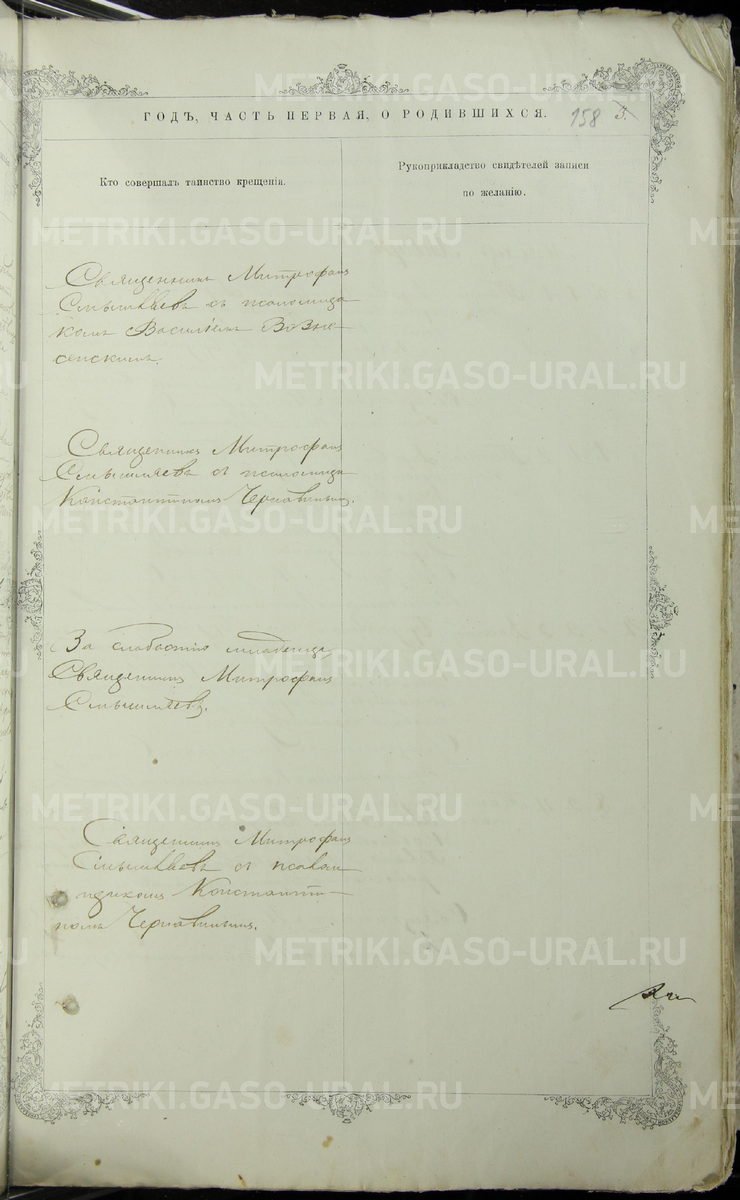 ГОДЪ, ЧАСТЬ ПЕРВАЯ, О РОДИВШИХСЯ. 158 5.
Кто совершалъ таинство крещенія.
Рукоприкладство свидѣтелей записи
по желанію.
Священникъ Митрофанъ
Смышляевъ съ псаломщи
комъ Василіемъ Возне-
сенскимъ.
Священникъ Митрофанъ
Смышляевъ съ псаломщи
Константиномъ Чернавинымъ.
За слабостію младенца
Священникъ Митрофанъ
Смышляевъ.
Священникъ Митрофанъ
Смышляевъ съ псалом
щикомъ Константи-
номъ Чернавинымъ.
METRIKI.GASO-URAL.RU